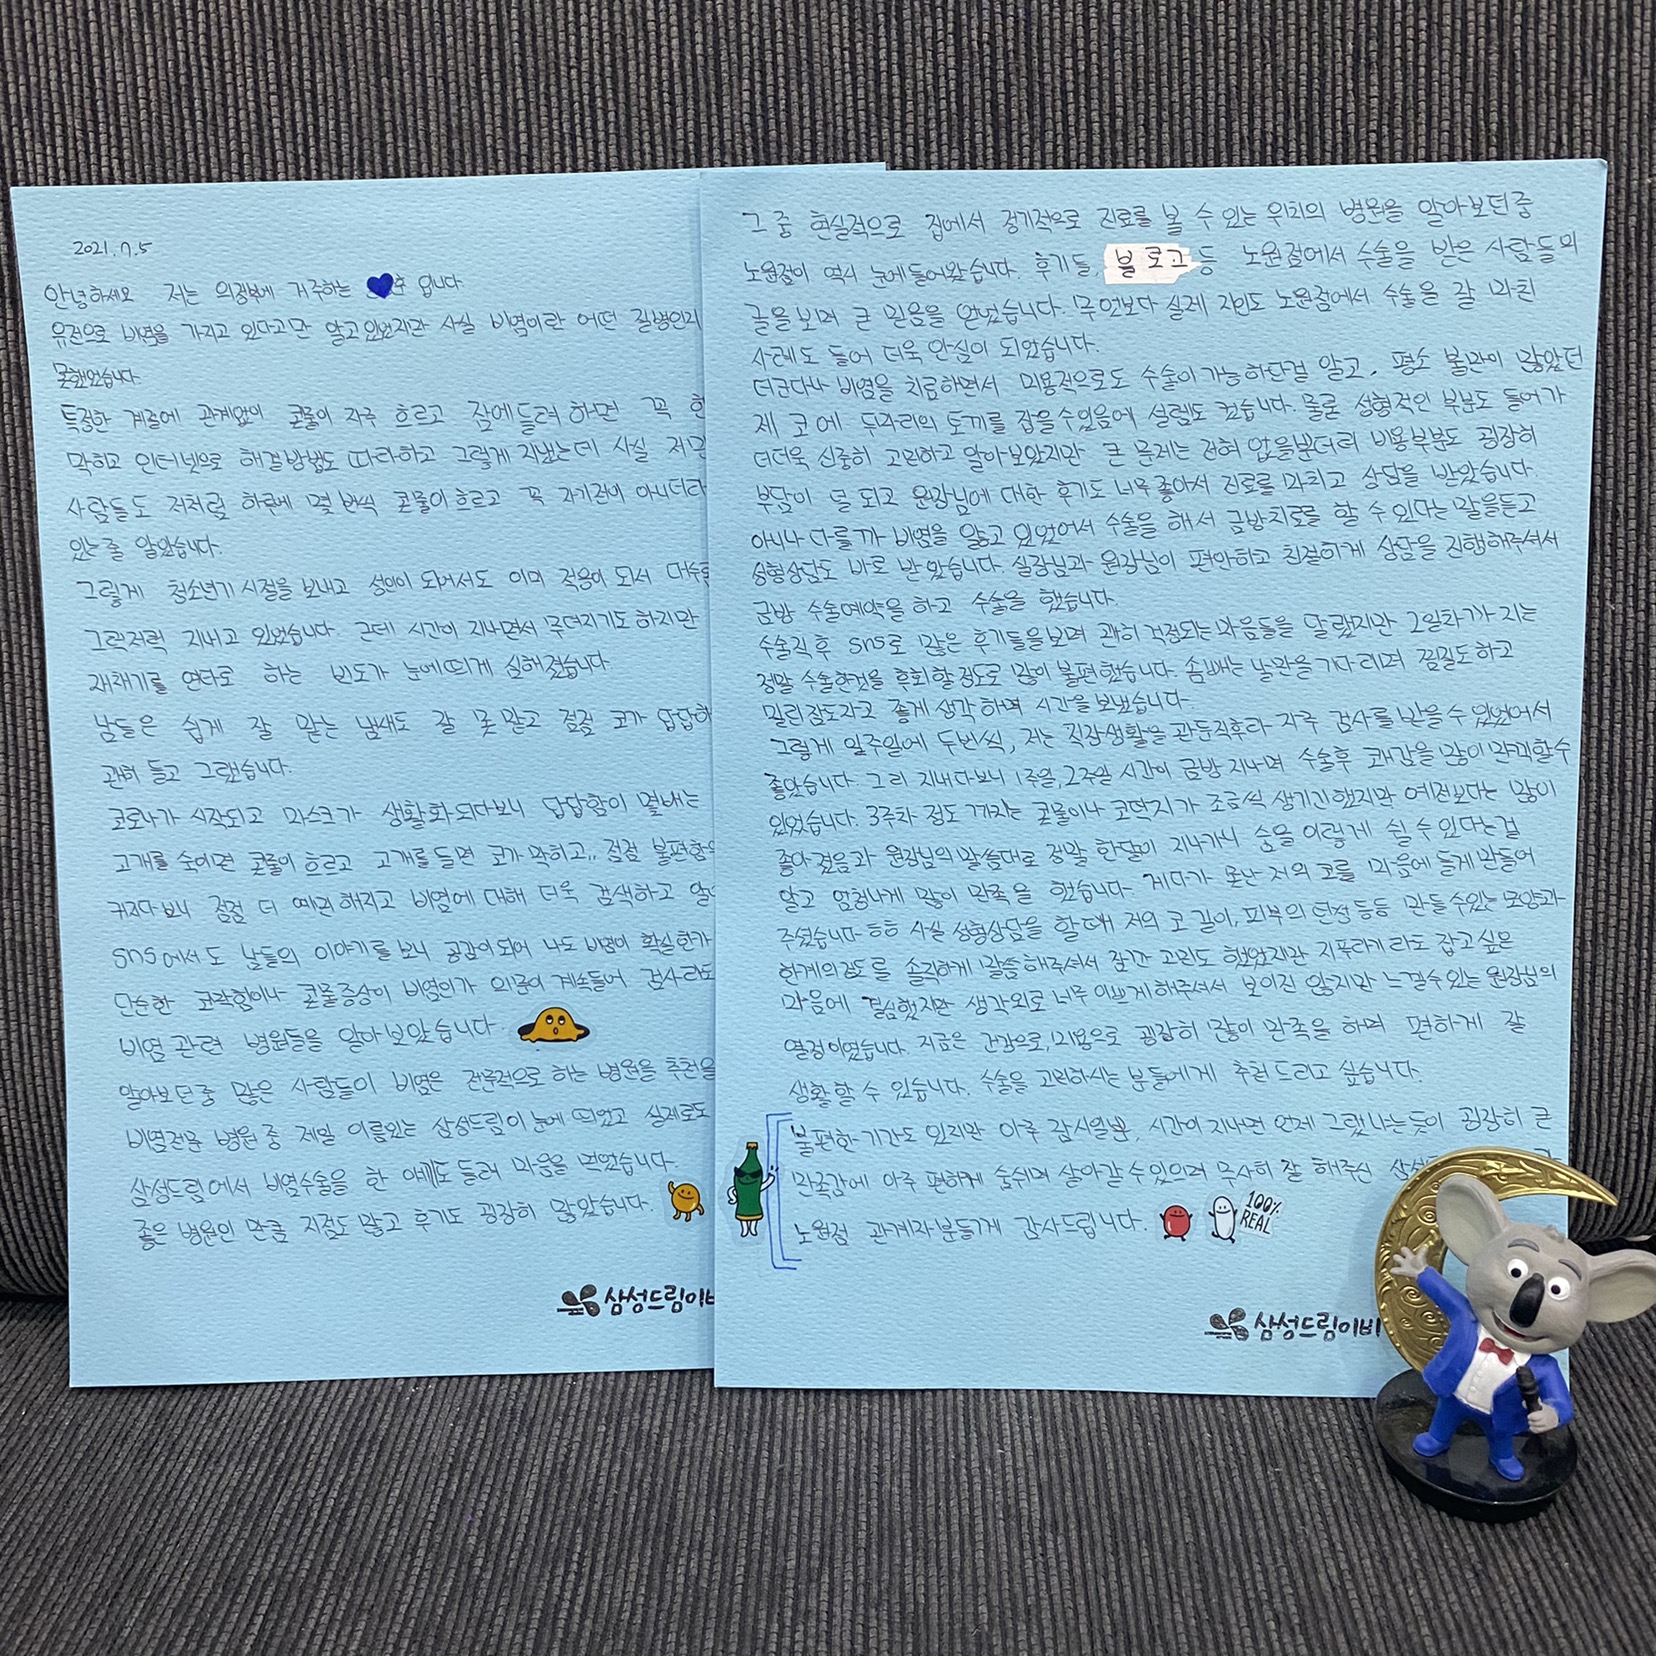 2021.7.5
안녕하세요 저는 의정부에 거주하는 입니다
유전으로 비염을 가지고 있다고만 알고있었지만 사실 비염이란 어떤 질병인지
못했었습니다.
특정한 계절에 관계없이 콧물이 자주 흐르고 잠에들려 하면 꼭 한
막히고 인터넷으로 해결방법도 따라하고 그렇게 지냈는데 사실 저만
사람들도 저처럼 하루에 몇 번씩 콧물이흐르고 꼭 자기전이 아니더라
있는 줄 알았습니다.
그렇게 청소년기 시절을 보내고 성인이 되어서도 이미 적응이 되서 대수롭
그럭저럭 지내고 있었습니다. 근데 시간이 지나면서 무뎌지기도 하지만
재채기를 연타로 하는 빈도가 눈에띄게 심해졌습니다
남들은 쉽게 잘 맡는 냄새도 잘 못 맡고 점점 코가 답답하
괜히 들고 그랬습니다.
코로나가 시작되고 마스크가 생활화되다보니 답답함이 몇배는
고개를 숙이면 콧물이 흐르고 고개를 들면 코가 막히고,, 점점 불편함이
커지다보니 점점 더 예민해지고 비염에 대해 더욱 검색하고 알아
sns에서도 남들의 이야기를 보니 공감이되어 나도 비염이 확실한가
단순한 코막힘이나 콧물증상이 비염인가 의문이 계속들어 검사라도
비염 관련 병원들을 알아보았습니다.
알아보던 중 많은 사람들이 비염은 전문적으로 하는 병원을 추천을
비염전문 병원 중 제일 이름있는 삼성드림이 눈에 띄었고 실제로도
삼성드림에서 비염수술을 한 얘기도 들려 마음을 먹었습니다.
좋은 병원인 만큼 지점도 많고 후기도 굉장히 많았습니다.
삼성드림이비
그 중 현실적으로 집에서 정기적으로 진료를 볼 수 있는 위치의 병원을 알아보던중
노원점이 역시 눈에들어왔습니다. 후기들, 블로그 등 노원점에서 수술을 받은 사람들의
글을보며 큰 믿음을 얻었습니다. 무엇보다 실제 지인도 노원점에서 수술을 잘 마친
사례도 들어 더욱 안심이 되었습니다.
더군다나 비염을 치료하면서 미용적으로도 수술이가능하단걸 알고, 평소 불만이 많았던
제 코에 두마리의 토끼를 잡을수있음에 설렘도 컸습니다. 물론 성형적인 부분도 들어가
더더욱 신중히 고민하고 알아보았지만 큰 문제는 전혀 없을뿐더러 비용부분도 굉장히
부담이 덜 되고 원장님에 대한 후기도 너무좋아서 진료를 마치고 상담을 받았습니다.
아니나 다를까 비염을 앓고 있었어서 수술을 해서 금방치료를 할 수 있다는 말을듣고
성형상담도 바로 받았습니다. 실장님과 원장님이 편안하고 친절하게 상담을 진행해주셔서
금방 수술예약을 하고 수술을 했습니다.
수술직후 sns로 많은 후기들을보며 괜히 걱정되는마음들을 달랬지만 2일차까지는
정말 수술한것을 후회할정도로 많이 불편했습니다. 솜빼는 날만을기다리며 찜질도하고
밀린잠도자고 좋게생각하며 시간을보냈습니다.
그렇게 일주일에 두번씩, 저는 직장생활을 관둔직후라 자주 검사를받을수있었어서
좋았습니다. 그리 지내다보니 1주일, 2주일 시간이 금방 지나며 수술후 쾌감을많이 만끽할수
있었습니다. 3주차 정도 까지는 콧물이나 코딱지가 조금씩 생기긴했지만 예전보다는 많이
좋아졌음과 원장님의 말씀대로 정말 한달이 지나가니 숨을 이렇게 쉴 수 있다는걸
알고 엄청나게 많이 만족을 했습니다. 게다가 못난 저의 코를 마음에 들게 만들어
주셨습니다ㅎㅎ 사실 성형상담을 할 때 저의 코길이, 피부의 탄성 등등 만들수있는 모양과
한계의정도를 솔직하게 말씀해주셔서 잠깐 고민도 했었지만 지푸라기라도 잡고싶은
마음에 결심했지만 생각외로 너무이쁘게해주셔서 보이진 않지만 느낄수있는 원장님의
열정이였습니다. 지금은 건강으로, 미용으로 굉장히 많이 만족을 하며 편하게 잘
생활할 수 있습니다. 수술을 고민하시는 분들에게 추천드리고 싶습니다.
불편한 기간도 있지만 아주 잠시일뿐, 시간이 지나면 언제 그랬냐는듯이 굉장히 큰
만족감에 아주 편하게 숨쉬며 살아갈 수 있으며 무사히 잘 해주신 삼성
노원점 관계자분들께 감사드립니다.
100% REAL
삼성드림이비